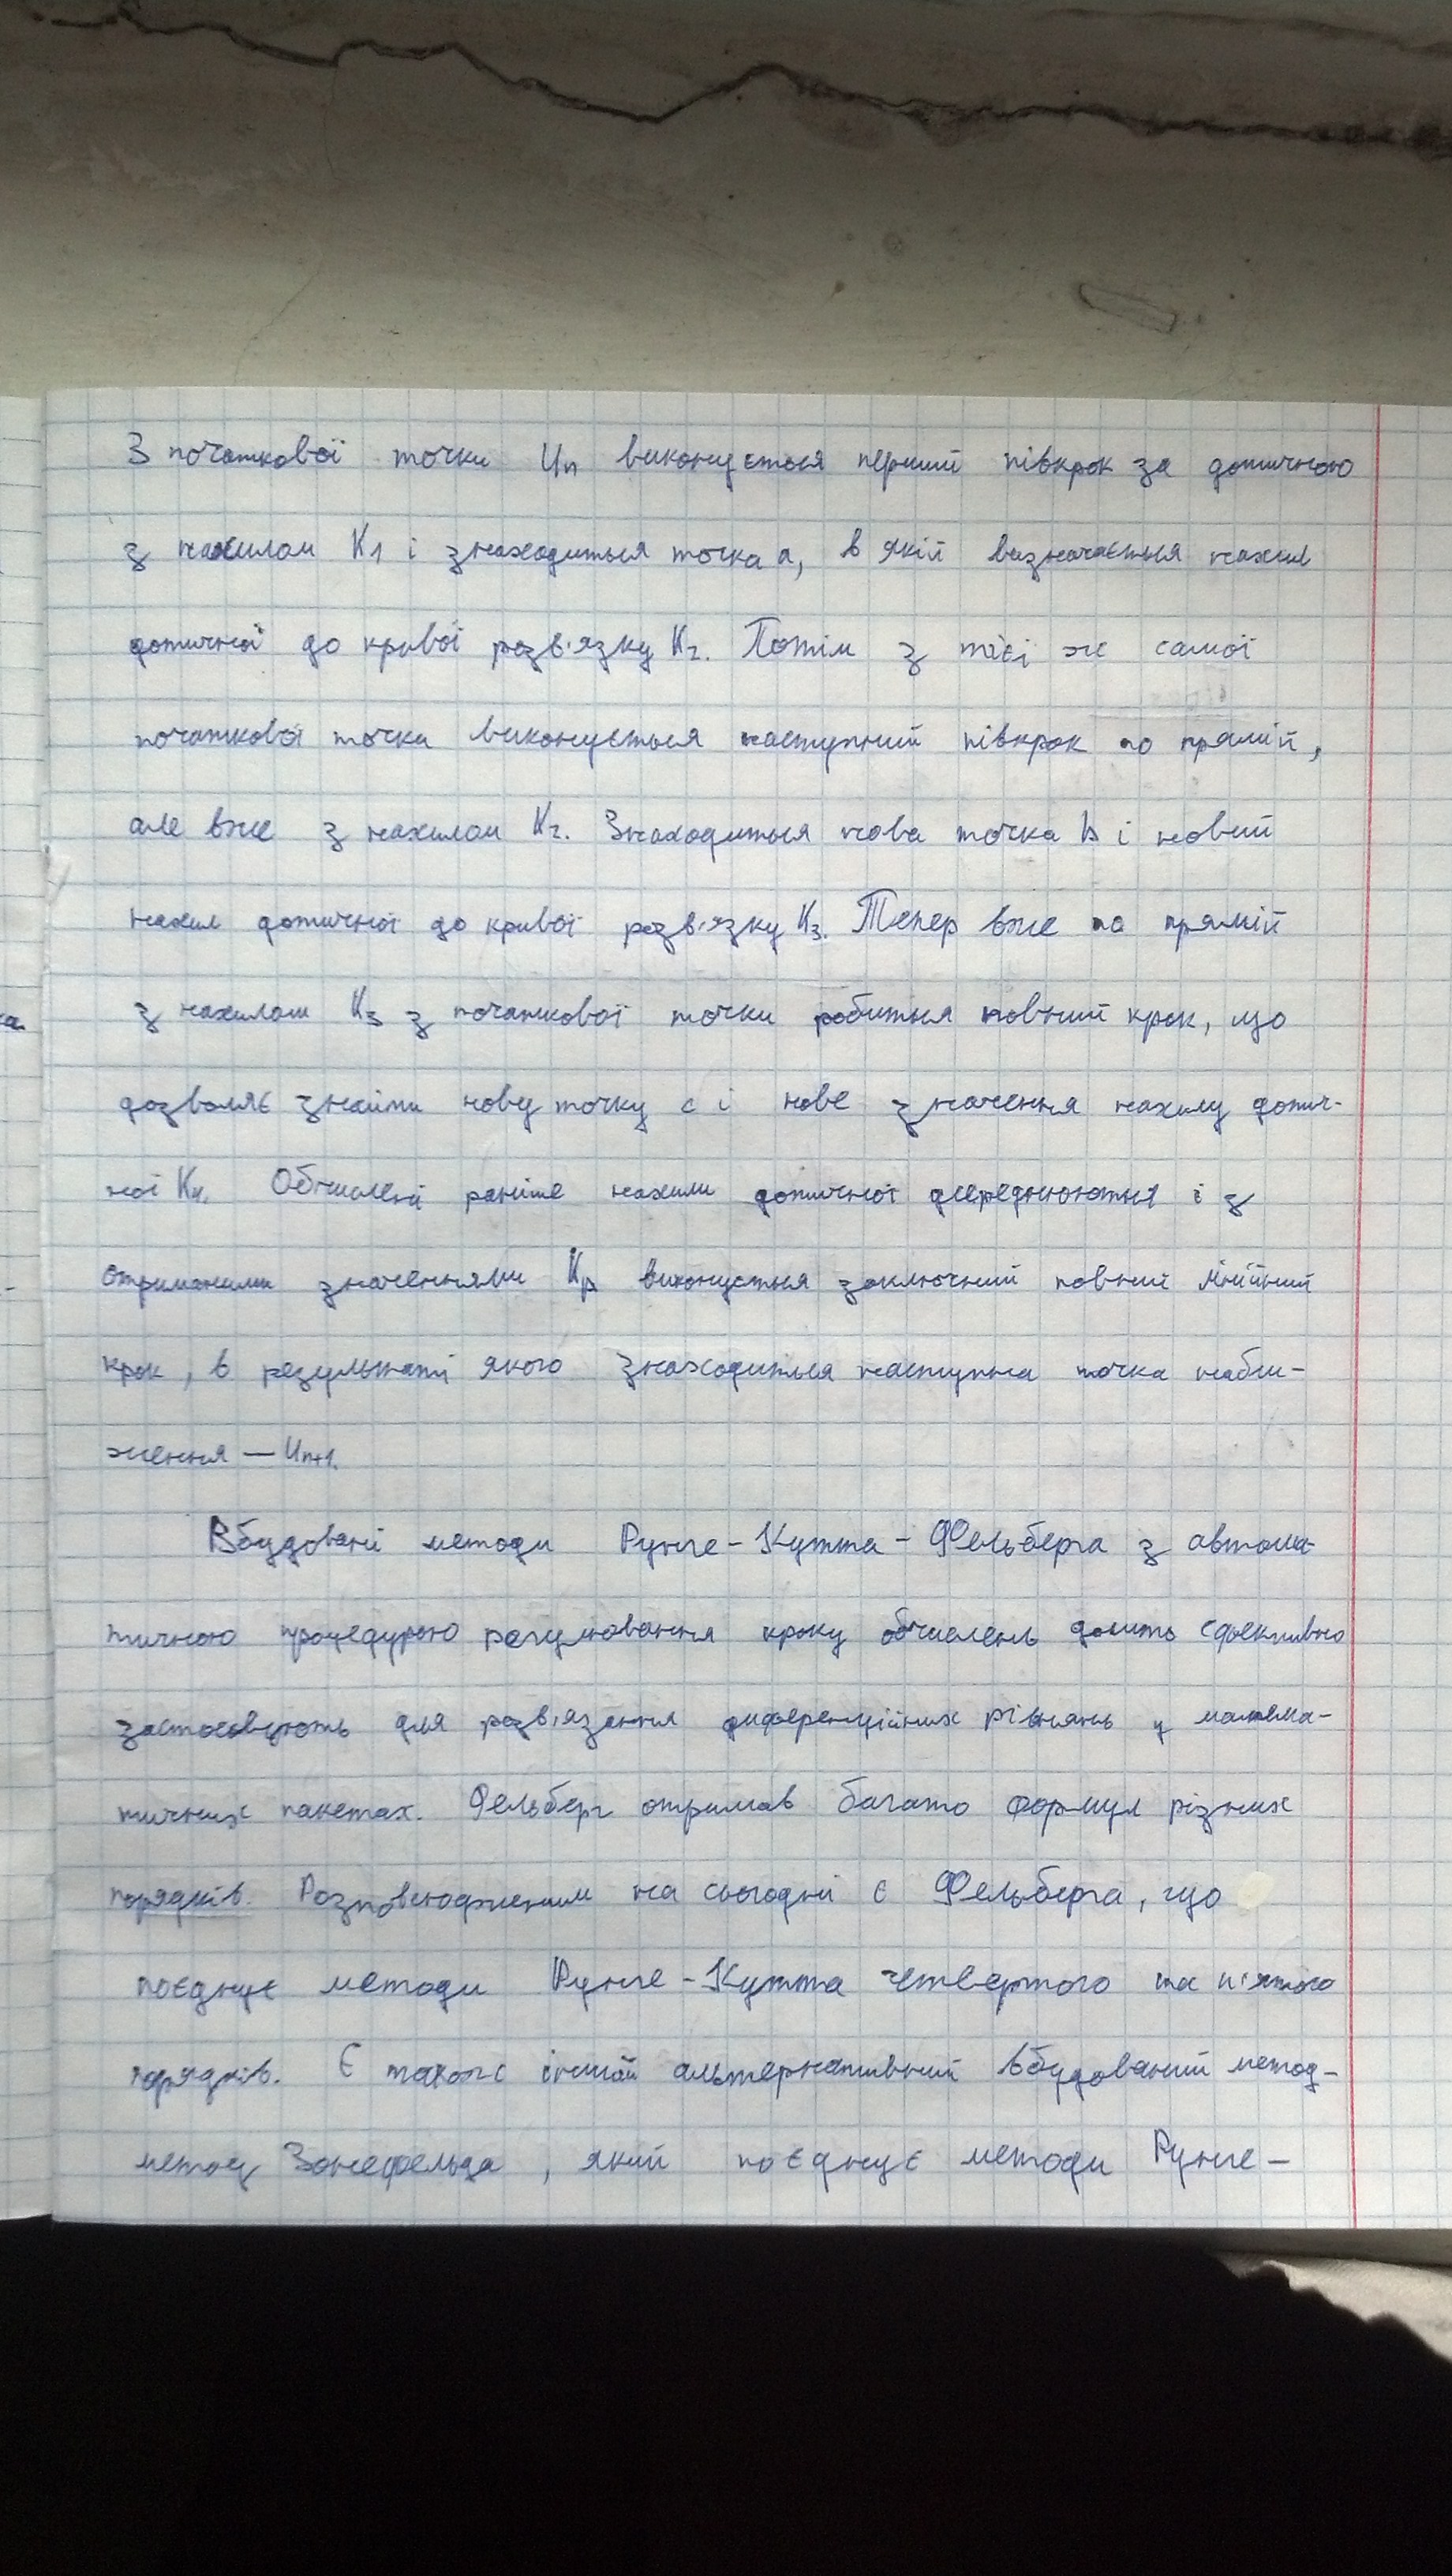 З початкової точки Uп виконується перший півкрок за дотичною
з нахилом К1 і знаходиться точка а, в якій визначається нахил
дотичної до кривої розв'язку К2. Потім з тієї ж самої
початкової точки виконується наступний півкрок по прямій,
але вже з нахилом К2. Знаходиться нова точка b і новий
нахил дотичної до кривої розв'язку К3. Тепер вже по прямій
з нахилом К3 з початкової точки робиться повний крок, що
дозволяє знайти нову точку с і нове значення нахилу дотич-
ної К4. Обчислені раніше нахили дотичної усереднюються і з
отриманими значеннями Кр виконується заключний повний лінійний
крок, в результаті якого знаходиться наступна точка набли-
ження — Uп+1.
Вбудовані методи Рунге-Кутта-Фельберга з автома-
тичною процедурою регулювання кроку обчислень досить ефективно
застосовують для розв'язання диференційних рівнянь у матема-
тичних пакетах. Фельберг отримав багато формул різних
порядків. Розповсюдженим на сьогодні є Фельберга, що
поєднує методи Рунге-Кутта четвертого та п'ятого
порядків. Є також інший альтернативний вбудований метод-
метод Зонефельда, який поєднує методи Рунге-